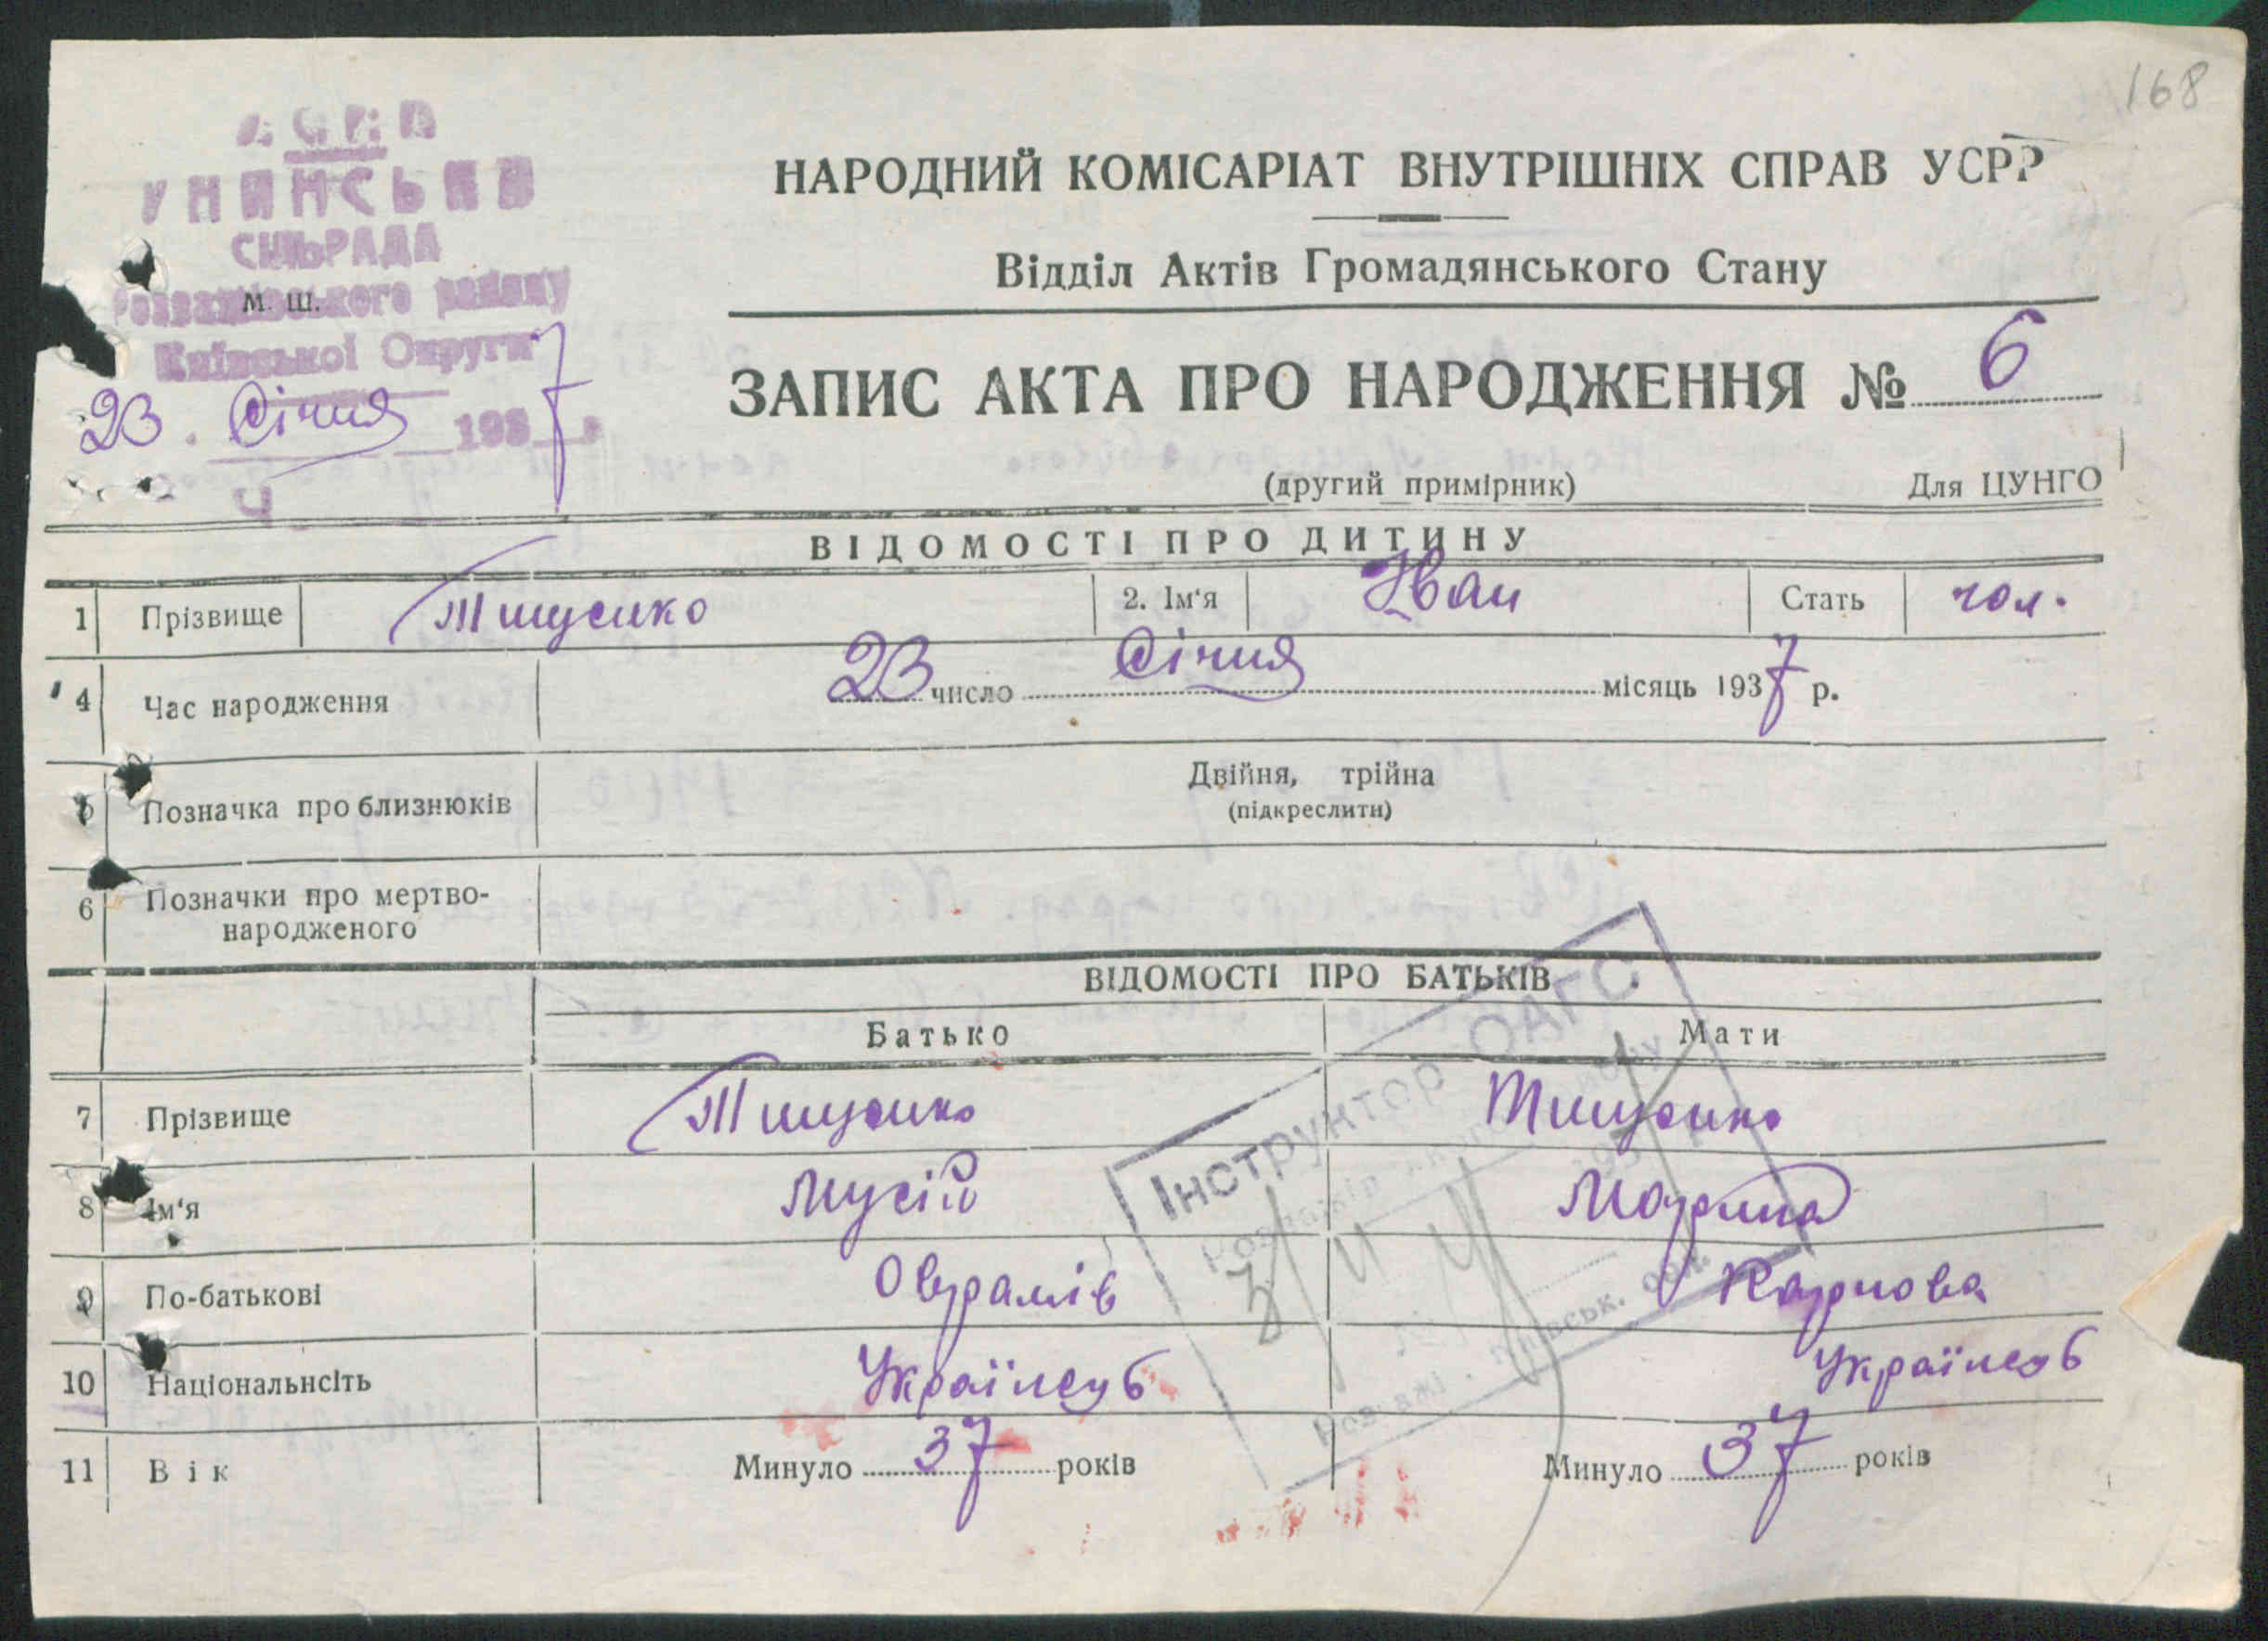 168
УСРР
УНИНСЬКА
СІЛЬРАДА
Розважівського району
М. Ш.
Київської Округи
23 . Січня 1937
Ч
НАРОДНИЙ КОМІСАРІАТ ВНУТРІШНІХ СПРАВ УСРР
Відділ Актів Громадянського Стану
ЗАПИС АКТА ПРО НАРОДЖЕННЯ № 6
(другий примірник) Для ЦУНГО
ВІДОМОСТІ ПРО ДИТИНУ
1 Прізвище Тищенко 2. Ім'я Іван Стать чол.
4 Час народження 23 число Січня місяць 1937 р.
Двійня, трійна
5 Позначка про близнюків (підкреслити)
6 Позначки про мертво-
народженого
ВІДОМОСТІ ПРО БАТЬКІВ
Батько Мати
7 Прізвище Тищенко Тищенко
8 Ім'я Мусій Марина
9 По-батькові Оврамів Карпова
10 Національнсіть Українець Українець
11 Вік Минуло 37 років Минуло 37 років
Інструктор ОАГС